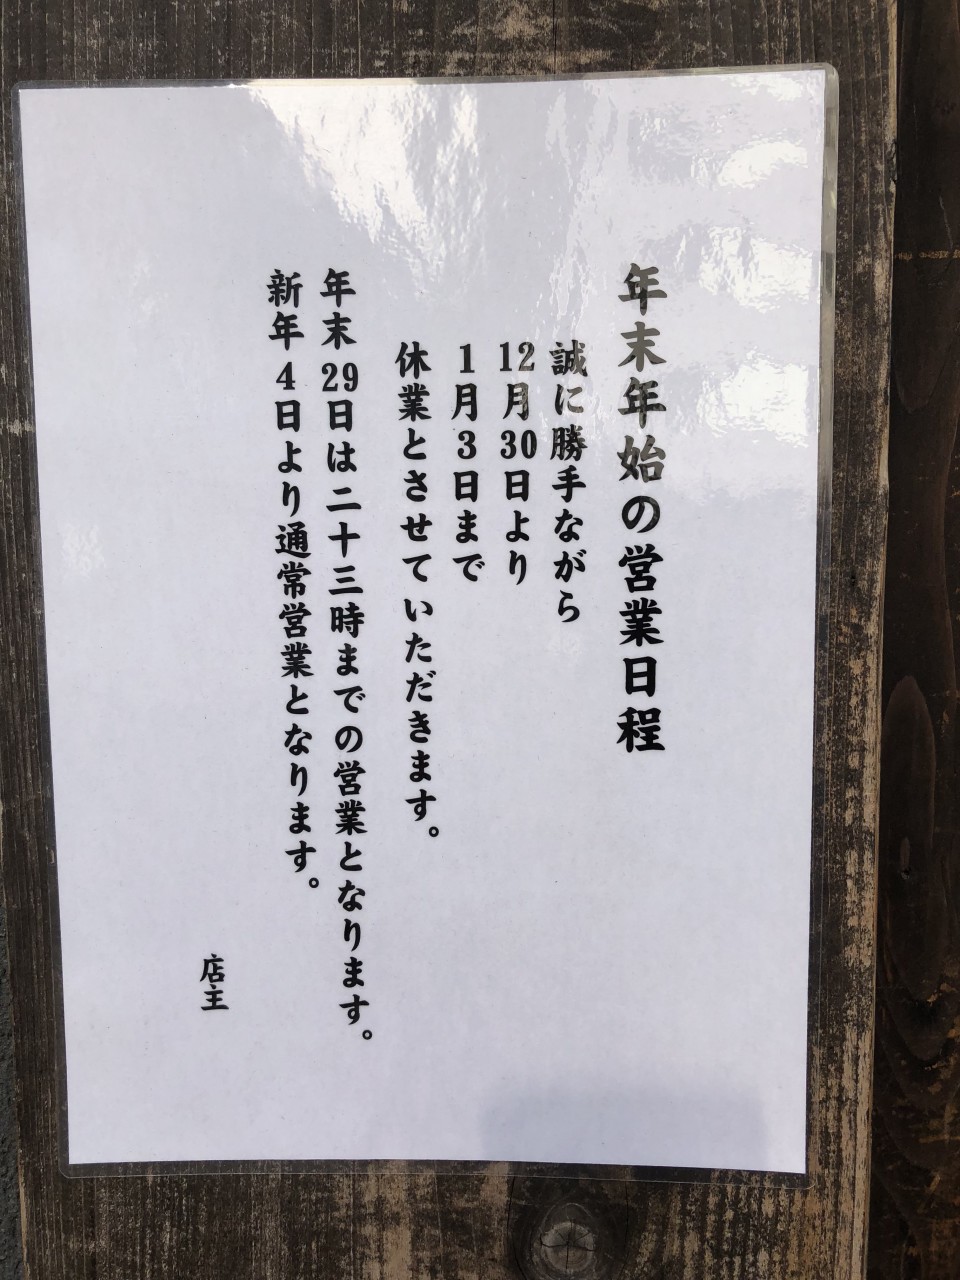 年末年始の営業日程
誠に勝手ながら
12月30日より
1月3日まで
休業とさせていただきます。
年末29日は二十三時までの営業となります。
新年4日より通常営業となります。
店主